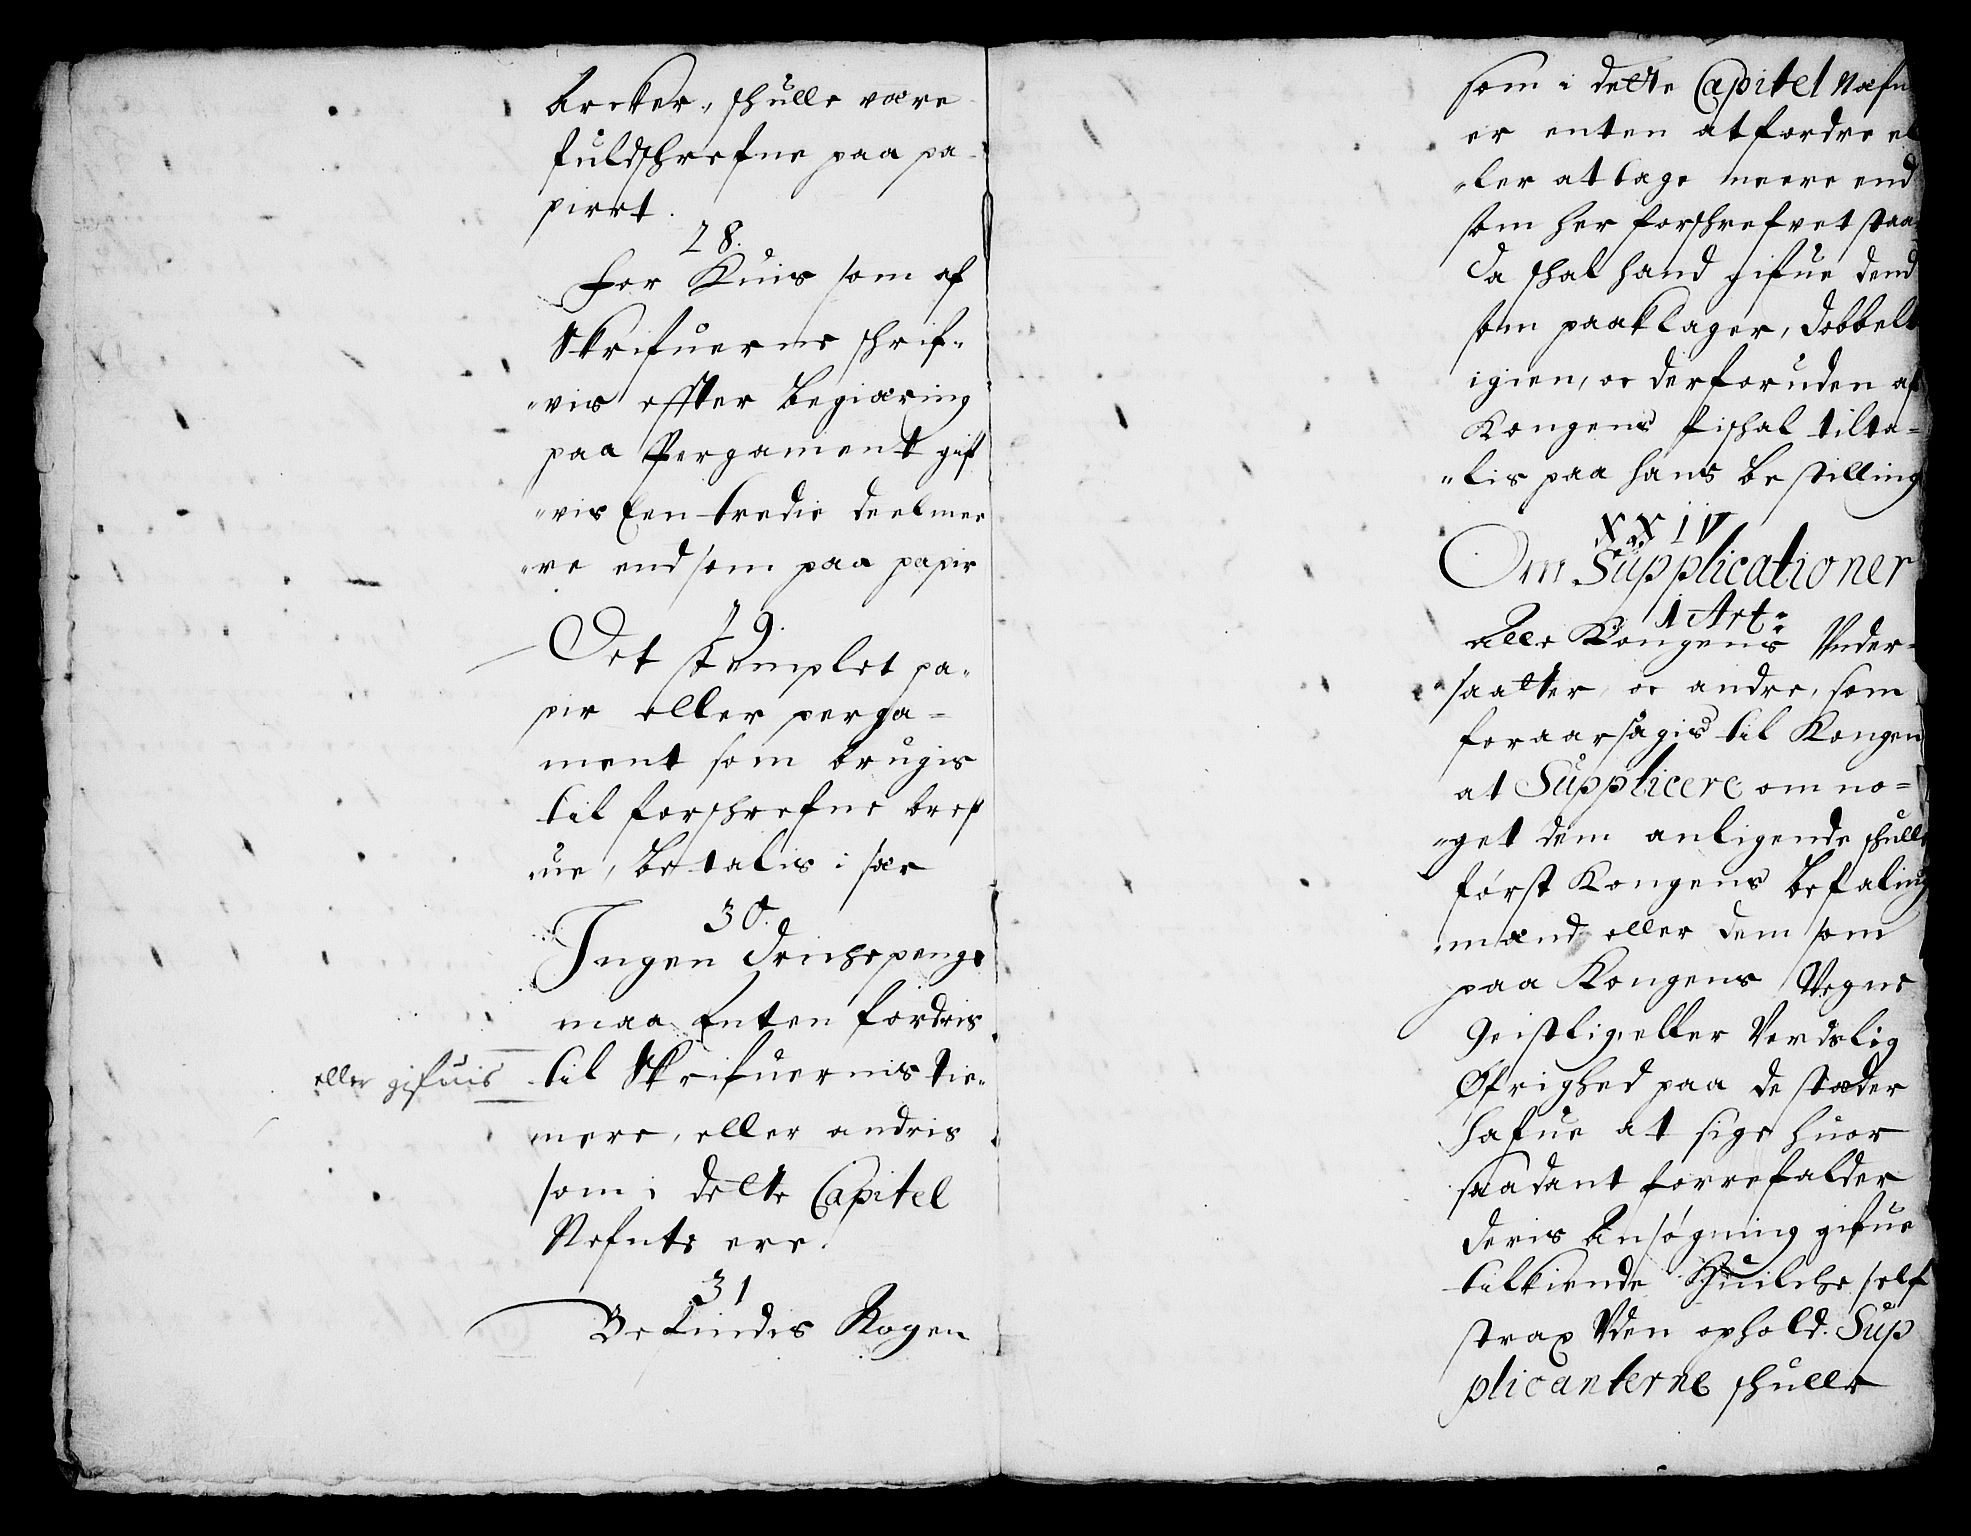 Arcker, skulle være
fuldskrefne paa pa-
piret.
28.
For Huis som af
Skrifuerne skrif-
vis effter begiæring
paa Pergament gif
vis Een tredie deel mee
re end som paa papir
29.
Det stemplet pa-
pir eller perga=
ment som brugis
til forschrefne bref
ue, betalis i sær
30.
Ingen drichepenge
maa Enten fordris
eller gifuis
til Skrifuernis tie-
nere, eller andris
som i dette Capitel
Nefnte ere.
31
Befindis Nogen
som i dette Capitel Nefn
er enten at fordre el
ler at tage meere end
som her forschrefvet staa
Da skal hand gifue dend
som paaklager, dobbelt
igien, oc derforuden af
Kongens fiskal tilta=
lis paa hans bestilling
XXIV
Om Supplicationer
1 Art:
Alle Kongens Vnder-
saatter, oc andre, som
foraarsagis til Kongen
at Supplicere om no=
get dem anligende skulle
først Kongens Befaling
mænd eller dem som
paa Kongens Vegne
Geistlig, eller Verdslig
Øfrighed paa de stæder
hafue at sige huor
saadant forrefalder
deris Ansøgning gifue
tilkiende Huilche self
strax Vden ophold. Sup
plicanterne skulle